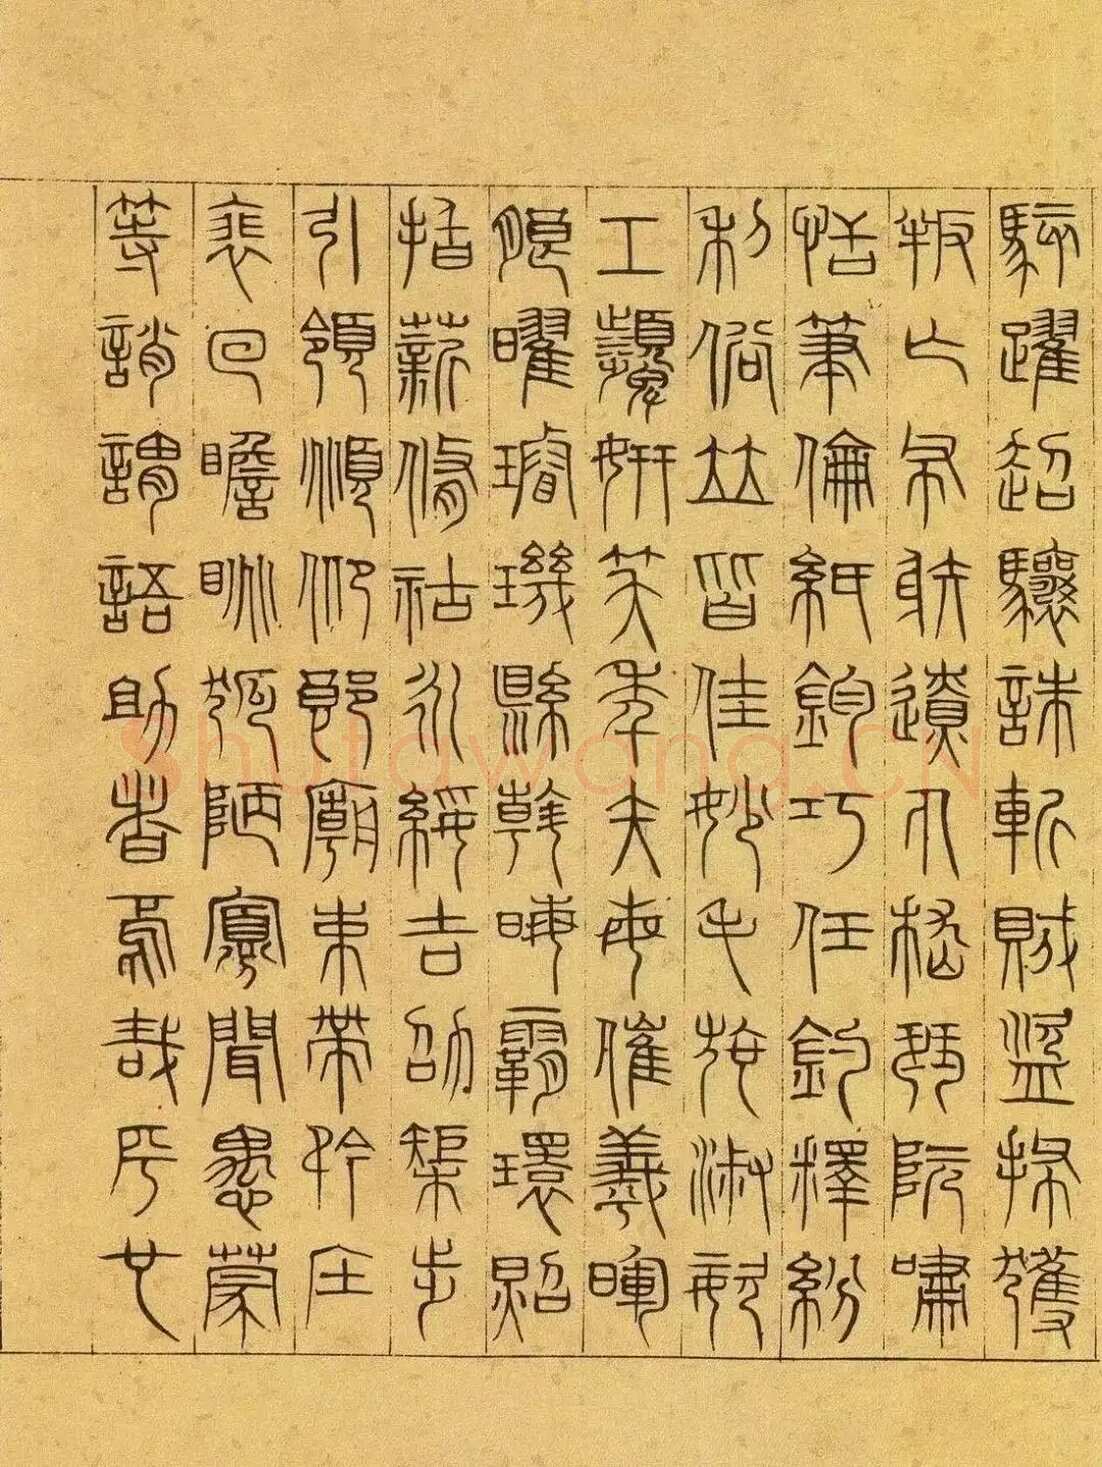 駭躍超驤誅斬賊盜捕獲
叛亡布射遼丸嵇琴阮嘯
恬筆倫紙鈞巧任釣釋紛
利俗並皆佳妙毛施淑姿
工顰妍笑年矢每催羲暉
朗曜璿璣縣斡晦霸環照
指薪脩祜永綏吉劭矩步
引領頫仰郎廟束帶矜莊
裵回瞻眺孤陋寡聞愚蒙
等誚謂語助者焉哉乎也
Shufawang.CN